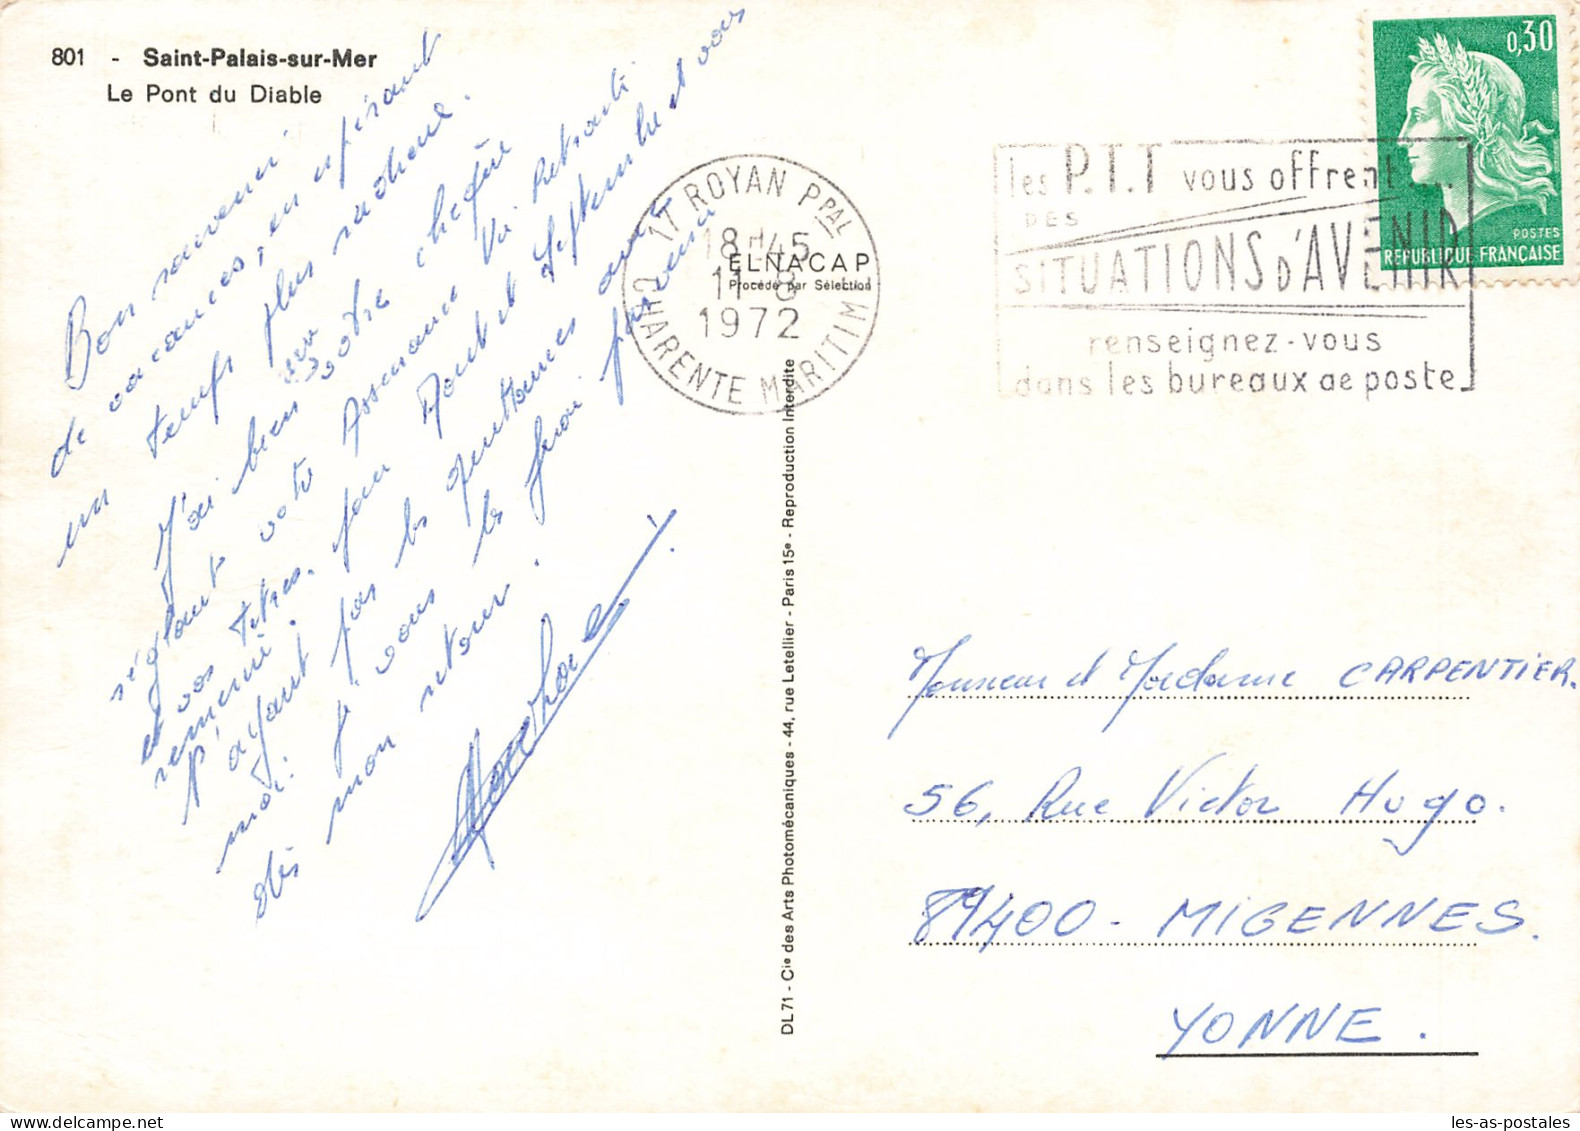 801 - Saint-Palais-sur-Mer
Le Pont du Diable
Bon souvenir
de vacances, en espérant
un temps plus radieux.
J'ai bien reçu votre chèque
réglant votre Assurance Vie Retraite
et vos titres.
remercié. pour Août et Septembre et vous
N'ayant pas les quittances avec
moi. je vous les ferai parvenir
dès mon retour.
17 ROYAN PPAL
18H45
11-8
1972
CHARENTE MARITIME
les P.T.T vous offrent...
DES
SITUATIONS D'AVENIR
renseignez-vous
dans les bureaux de poste
0,30
POSTES
REPUBLIQUE FRANÇAISE
ELNACAP
Procédé par Sélection
DL 71 - Cie des Arts Photomécaniques - 44, rue Letellier - Paris 15e - Reproduction Interdite
Monsieur et Madame CARPENTIER.
56, Rue Victor Hugo.
89400 - MIGENNES.
YONNE.
les-as-postales